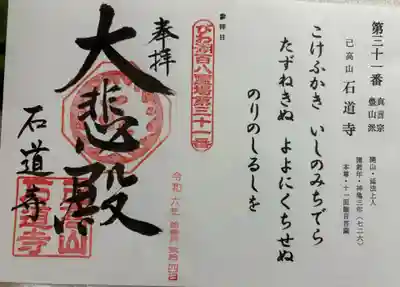 参拝日
第三十一番 真言宗
豊山派
己高山 石道寺
開山・延法上人
開創年・神亀三年（七二六）
本尊・十一面観音菩薩
こけふかき いしのみちでら
たずねきぬ よよにくちせぬ
のりのしるしを
びわ湖百八霊場第三十一番
奉拝
大悲殿
石道寺
令和六年
石道寺